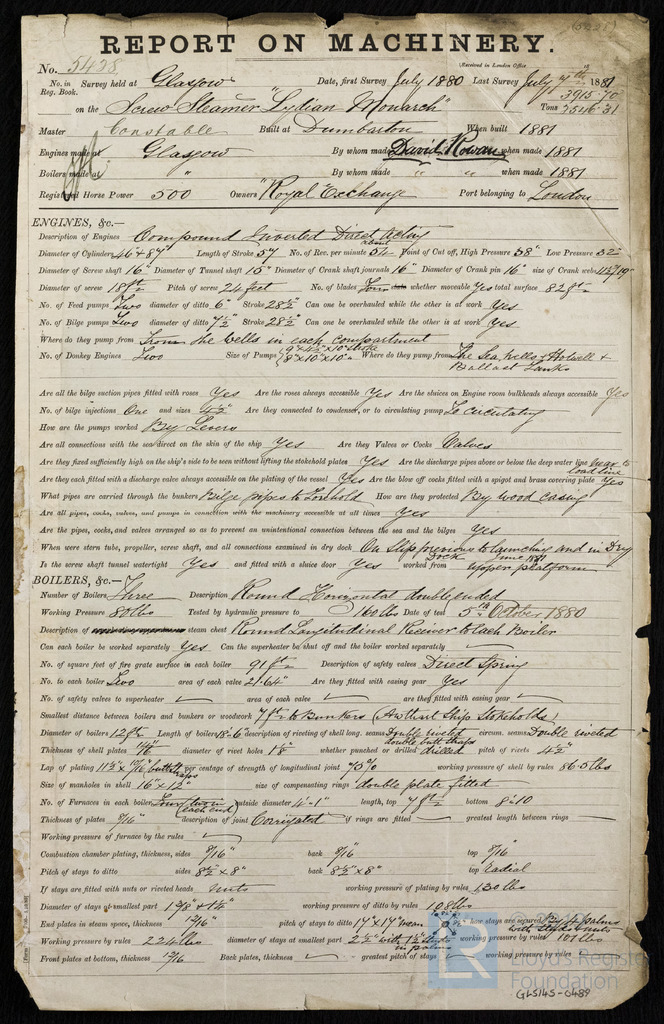 (5428)
REPORT ON MACHINERY.
No. 5428
(Received in London Office
No. in Survey held at Glasgow Date, first Survey July 1880 Last Survey July 7th 1881
Reg. Book. 3915.70
on the Screw Steamer "Lydian Monarch" Tons 3546.31
Master Constable Built at Dumbarton When built 1881
Engines made at Glasgow By whom made David Rowan when made 1881
Boilers made at " By whom made " " when made 1881
Registered Horse Power 500 Owners "Royal Exchange Port belonging to London
ENGINES, &c.—
Description of Engines Compound Inverted Direct Acting
Diameter of Cylinders 46 & 87" Length of Stroke 57 No. of Rev. per minute about 54 Point of Cut off, High Pressure 38" Low Pressure 32"
Diameter of Screw shaft 16" Diameter of Tunnel shaft 15" Diameter of Crank shaft journals 16" Diameter of Crank pin 16" size of Crank webs
Diameter of screw 18 ft Pitch of screw 24 feet No. of blades Four whether moveable Yes total surface 82 ft
No. of Feed pumps Two diameter of ditto 6" Stroke 28½" Can one be overhauled while the other is at work Yes
No. of Bilge pumps Two diameter of ditto 7½" Stroke 28½" Can one be overhauled while the other is at work Yes
Where do they pump from From the wells in each compartment
No. of Donkey Engines Two Size of Pumps 9" x 4½" x 10" Stroke 8" x 10" x 10" Where do they pump from The Sea, Wells, Hotwell & Ballast Tanks
Are all the bilge suction pipes fitted with roses Yes Are the roses always accessible Yes Are the sluices on Engine room bulkheads always accessible Yes
No. of bilge injections One and sizes 4½" Are they connected to condenser, or to circulating pump To Circulating
How are the pumps worked By Levers
Are all connections with the sea direct on the skin of the ship Yes Are they Valves or Cocks Valves
Are they fixed sufficiently high on the ship's side to be seen without lifting the stokehold plates Yes Are the discharge pipes above or below the deep water line Near to load line
Are they each fitted with a discharge valve always accessible on the plating of the vessel Yes Are the blow off cocks fitted with a spigot and brass covering plate Yes
What pipes are carried through the bunkers Bilge pipes to forehold How are they protected By wood casing
Are all pipes, cocks, valves, and pumps in connection with the machinery accessible at all times Yes
Are the pipes, cocks, and valves arranged so as to prevent an unintentional connection between the sea and the bilges Yes
When were stern tube, propeller, screw shaft, and all connections examined in dry dock On Slip previous to launching and in Dry Dock June 1881
Is the screw shaft tunnel watertight Yes and fitted with a sluice door Yes worked from upper platform
BOILERS, &c.—
Number of Boilers Three Description Round Horizontal double ended
Working Pressure 80 lbs Tested by hydraulic pressure to 160 lbs Date of test 5th October 1880
Description of steam chest Round Longitudinal Receiver to each Boiler
Can each boiler be worked separately Yes Can the superheater be shut off and the boiler worked separately
No. of square feet of fire grate surface in each boiler 91 ft Description of safety valves Direct Spring
No. to each boiler Two area of each valve 21.64" Are they fitted with easing gear Yes
No. of safety valves to superheater area of each valve are they fitted with easing gear
Smallest distance between boilers and bunkers or woodwork 7 ft to Bunkers (Awthwart Ship Stokeholds)
Diameter of boilers 12 ft Length of boilers 18.6 description of riveting of shell long. seams Double riveted double butt straps circum. seams Double riveted
Thickness of shell plates diameter of rivet holes 1⅛" whether punched or drilled drilled pitch of rivets 4½"
Lap of plating butt straps per centage of strength of longitudinal joint 75% working pressure of shell by rules 86.5 lbs
Size of manholes in shell 16" x 12" size of compensating rings double plate fitted
No. of Furnaces in each boiler Four (two in each end) outside diameter 4'-1" length, top 7 ft bottom 8'.10
Thickness of plates 9/16" description of joint Corrugated if rings are fitted greatest length between rings
Working pressure of furnace by the rules
Combustion chamber plating, thickness, sides 9/16" back 9/16" top 9/16"
Pitch of stays to ditto sides 8½" x 8" back 8½" x 8" top Radial
If stays are fitted with nuts or riveted heads Nuts working pressure of plating by rules 130 lbs
Diameter of stays at smallest part 1⅜" & 1¼" working pressure of ditto by rules 108 lbs
End plates in steam space, thickness 13/16" pitch of stays to ditto 17" x 17" mean how stays are secured By palms with studs & nuts
Working pressure by rules 224 lbs diameter of stays at smallest part 2½" with studs in palms working pressure by rules 101 lbs
Front plates at bottom, thickness 13/16 Back plates, thickness greatest pitch of stays working pressure by rules
LR
Lloyd's Register
Foundation
GLS145-0489